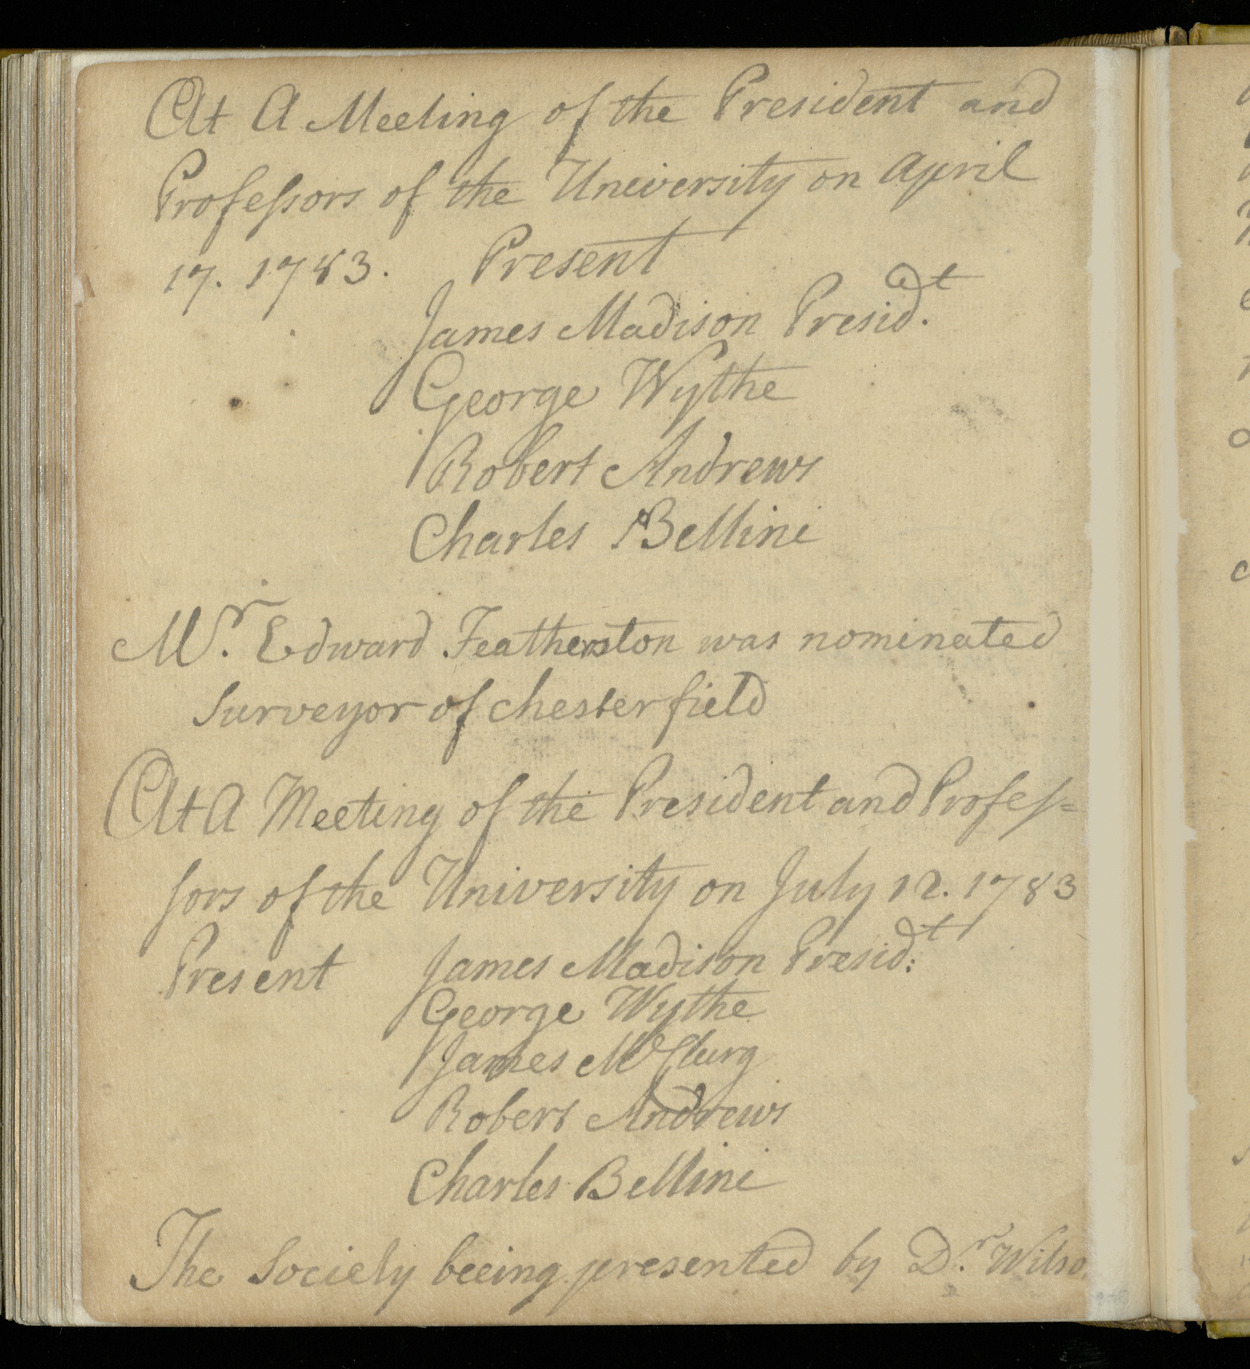 At A Meeting of the President and
Professors of the University on April
17. 1783. Present
James Madison Presid.t
George Wythe
Robert Andrews
Charles Bellini
Mr. Edward Featherston was nominated
Surveyor of Chesterfield
At A Meeting of the President and Profes=
sors of the University on July 12. 1783
Present James Madison Presid:t
George Wythe
James McClurg
Robert Andrews
Charles Bellini
The Society beeing presented by Dr. Wilso